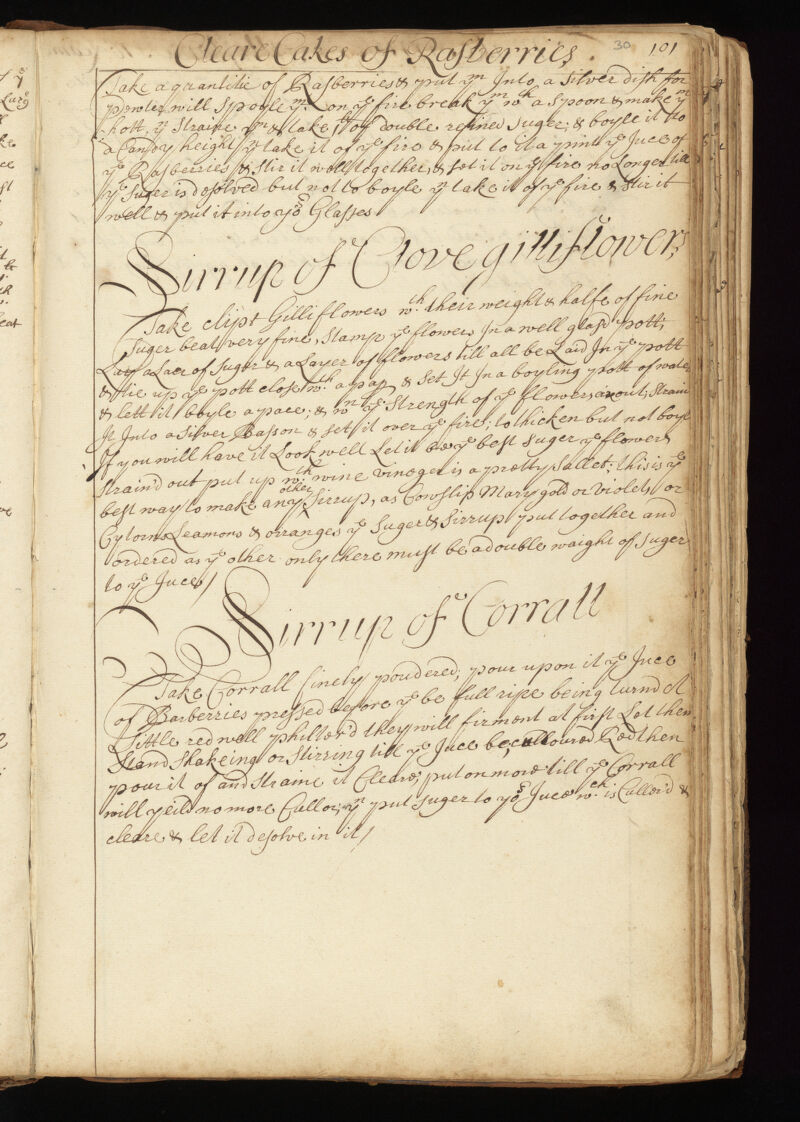 Cleare Cakes of Rasberries 30 101
Take a quantitie of Rasberries & put ym Into a Silver dish for
pewter will Spoyle ym on ye fire break ym wth a Spoon & make ym
hott, yn Straine ym & take of double refined Suger; & boyle it to
a Candy height yn take it of ye fire & put to it a pint ye Juce of
ye Rasberries & Stir it well together, & Set it on ye fire no Longer till
ye Suger is desolved but not to boyle yn take it of ye fire & Stir it
well & put it into yor Glasses
Sirrup of Clove gilliflowers
Take clipt Gilliflowers wth their weight & halfe of fine
Suger beat very fine, Stamp ye flowers In a well glasd pott,
Lay a Laer of Suger & a Layer of flowers till all be Laid In ye pott
& tie up ye pott close wth a pap & Set It In a boyling pott of water
& lett it boyle apace; & wn ye Strength of ye flowers is out, Strain
It Into a Silver Basson & Set it over ye fire; to thicken but not boyle
If you will have it Look well Let it be ye best Suger ye flowers
straind out put up wth wine vineger is a pretty Sallet; this is ye
best way to make any other Sirrup, as Cowslip Marygold or Violets, or
Cytorns Leamons & orranges ye Suger & Sirrup put together and
ordered as ye other only there must be a double waight of Suger
to ye Juce /
Sirrup of Corrall
Take Corrall finely poudered, pour upon it ye Juce
of Barberries pressed before ye be full ripe being turnd A
Little red well philter'd they will firment at first Let them
Stand Shakeing or Stirring till ye Juce be culloured Red then
pour it of and Straine it Cleare; put on more till ye Corrall
will yeild no more Cullor, yn put Suger to yor Juce wch is Culler'd &
cleare & let it desolve in it /